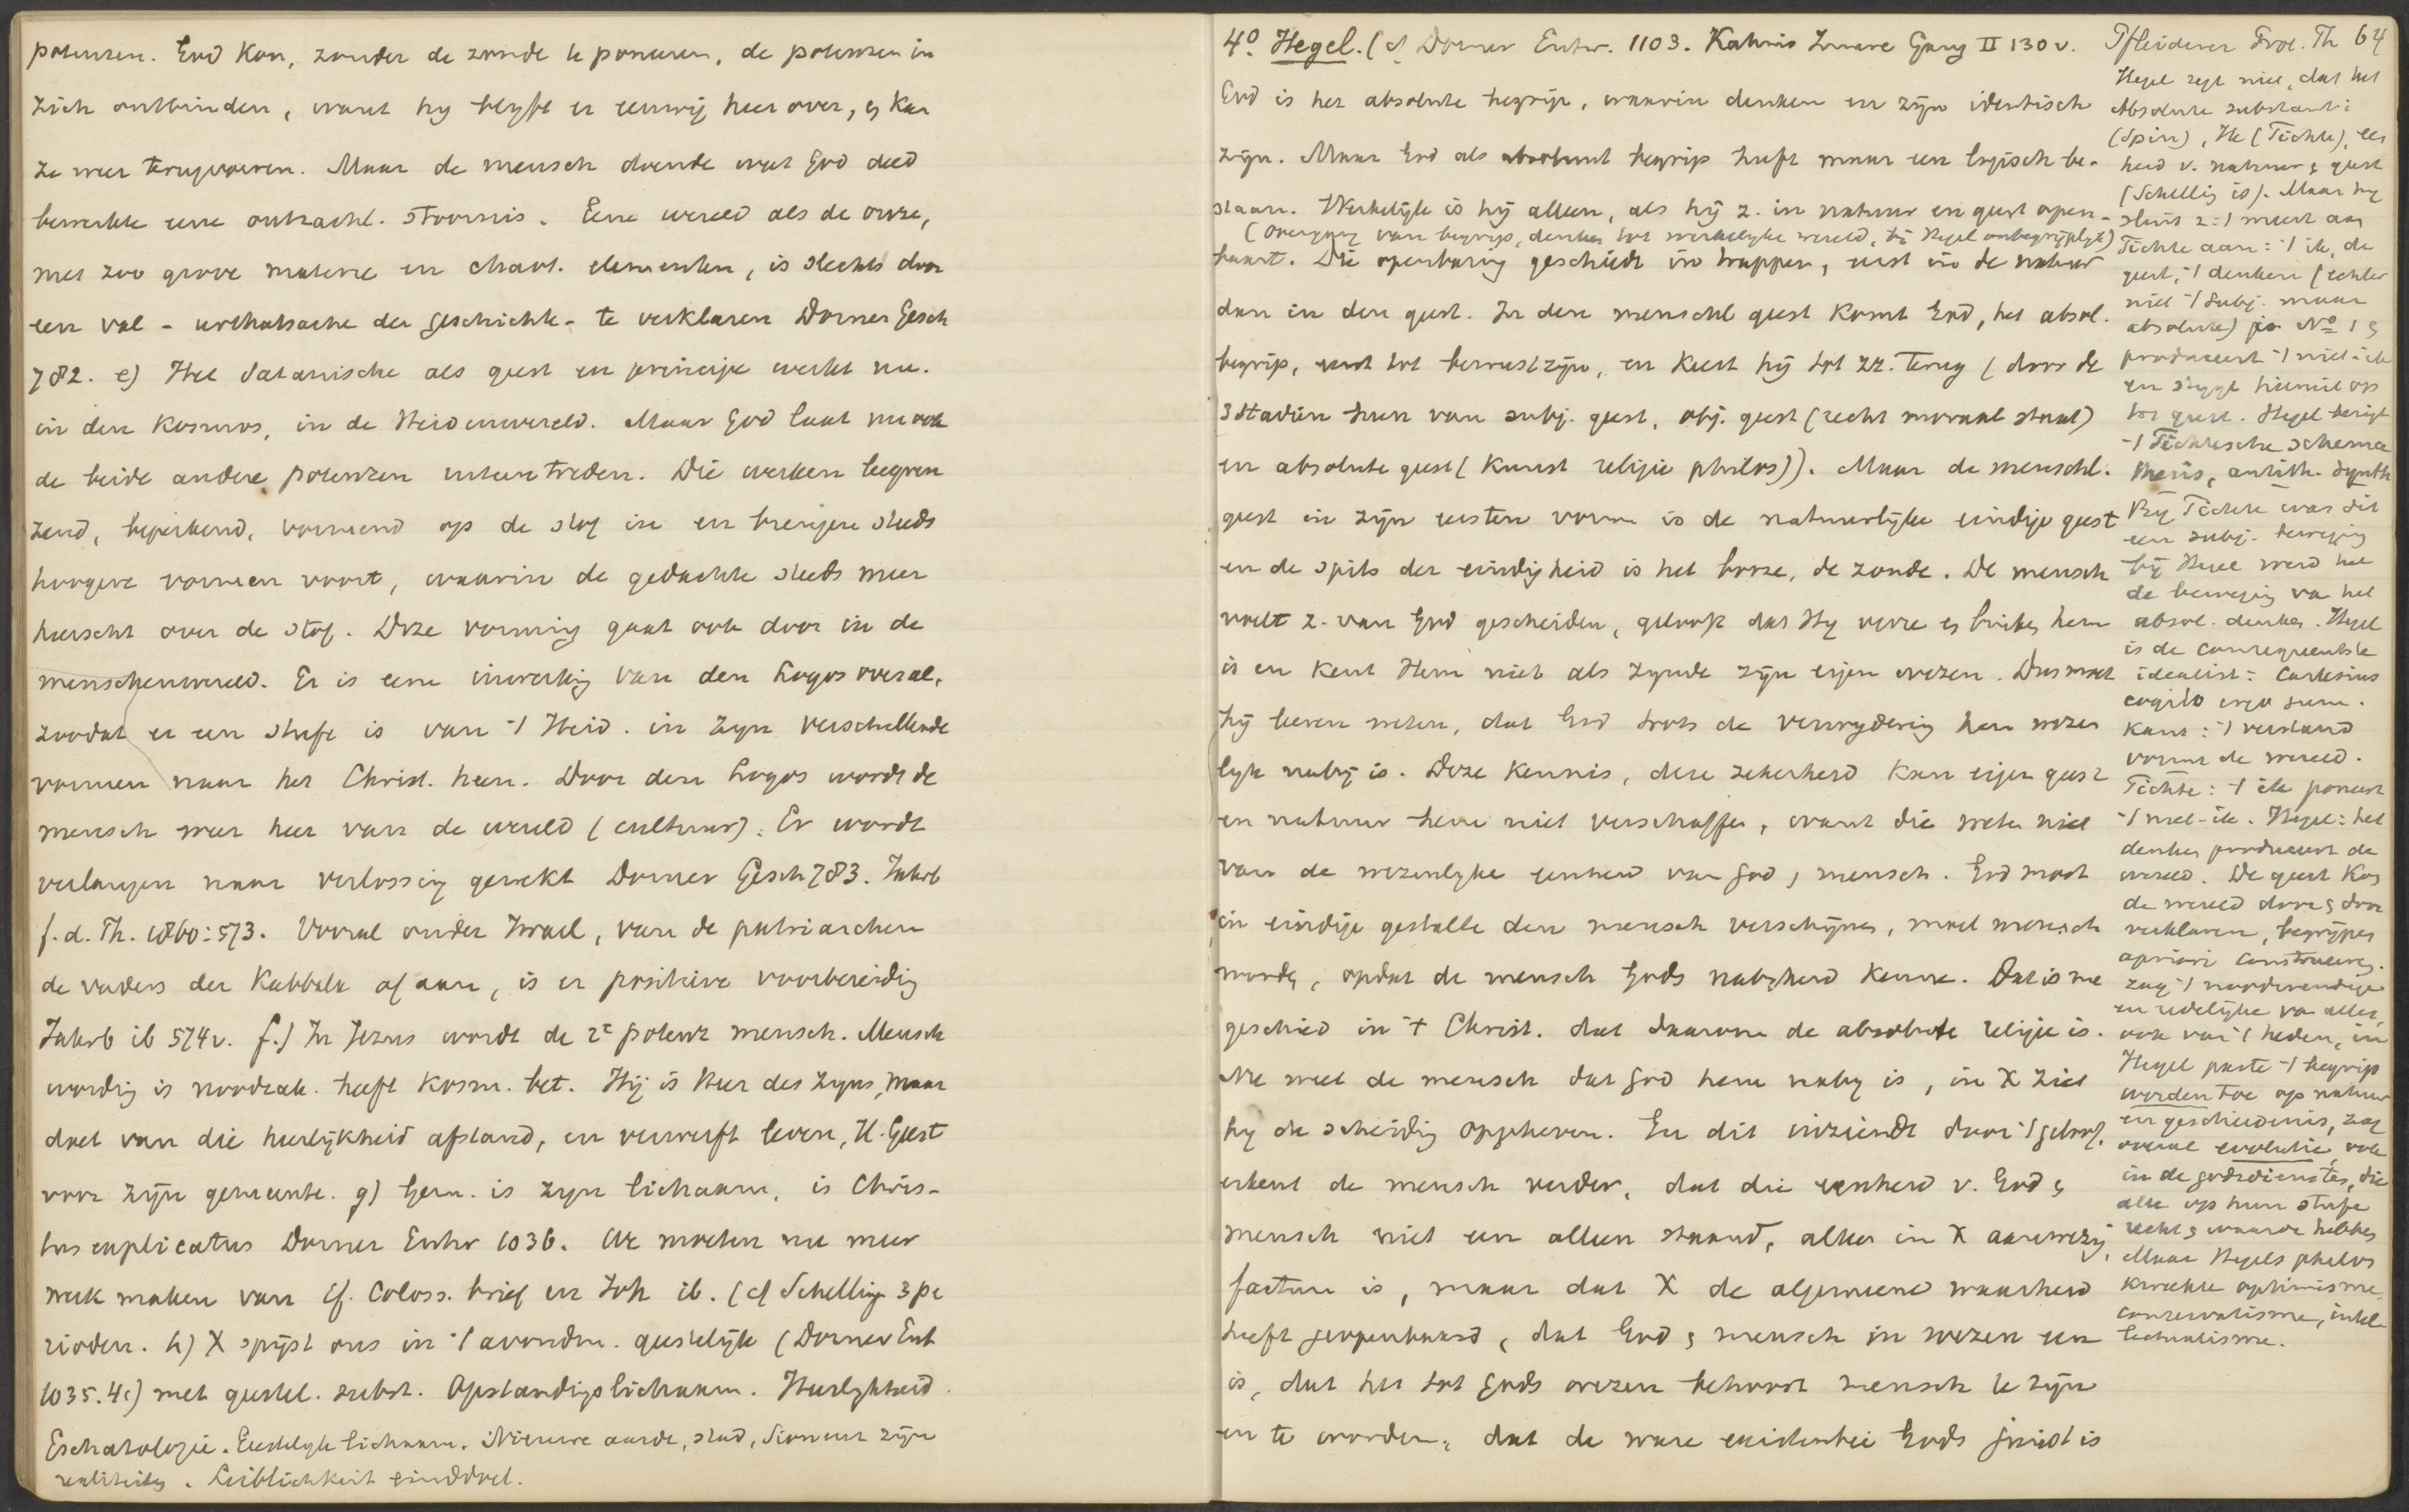 potenzen. God kon, zonder de zonde te poneeren, de potenzen in
zich ontbinden, want hy blyft er eeuwig heer over, & kan
ze weer terugvoeren. Maar de mensch doende wat God deed
bewerkte eene ontzachl. stoornis. Eene wereld als de onze,
met zoo grove materie en chaot. elementen, is slechts door
een val - urthatsache der Geschichte - te verklaren Dorner Gesch
782. e) Het Satanische als geest en principe werkt nu.
in den Kosmos, in de Heidenwereld. Maar God laat nu ook
de beide andere potenzen intreden. Die werken begren
zend, beperkend, vormend op de stof in en brengen steeds
hoogere vormen voort, waarin de gedachte steeds meer
heerscht over de stof. Deze vorming gaat ook door in de
menschenwereld. Er is eene inwerking van den Logos overal,
zoodat er een stufe is van 't Heid. in zyn verschillende
vormen naar het Christ. heen. Door den Logos wordt de
mensch weer heer van de wereld (cultuur). Er wordt
verlangen naar verlossing gewekt Dorner Gesch 783. Jahrb
f. d. Th. 1860: 573. Vooral onder Israel, van de patriarchen
de vaders der Kabbala af aan, is er positieve voorbereidig
Jahrb ib 574v. f.) In Jezus wordt de 2e potenz mensch. Mensch
wording is noodzak. heeft kosm. bet. Hij is Heer des Zyns, maar
doet van die heerlijkheid afstand, en verwerft leven, H. Geest
voor zijn gemeente. g) Gem. is zyn lichaam, is Chris-
tus explicatus Dorner Entw 1036. We moeten nu meer
werk maken van Ef. Coloss. brief en Joh ib. (cf Schelling 3 pe
rioden. h) X spijst ons in 't avondm. geestelijk (Dorner Ent
1035. 4c) met geestel. subst. Opstandigslichaam. Heerlykheid.
Eschatologie. Geestelyk lichaam. Nieuwe aarde, stad, Sion enz zijn
realiteiten. Leiblichkeit einddoel.
4o Hegel. (cf Dorner Entw. 1103. Kahnis Innere Gang II 130v.
God is het absolute begrip, waarin denken en zijn identisch
zijn. Maar God als absoluut begrip heeft maar een logisch be-
staan. Werkelijk is hij alleen, als hij z. in natuur en geest open-
(overgang van begrip, denken tot werkelyke wereld, bij Hegel onbegrijplyk)
baart. Die openbaring geschiedt in trappen, eerst in de natuur
dan in den geest. In den menschl geest komt God, het absol.
begrip, eerst tot bewustzijn, en keert hij tot zz. terug (door de
3 stadiën heen van subj. geest, obj. geest (recht moraal staat)
en absolute geest (kunst religie philos)). Maar de menschl.
geest in zijn eersten vorm is de natuurlijke eindige geest
en de spits der eindigheid is het booze, de zonde. De mensch
voelt z. van God gescheiden, gelooft dat Hy verre & buiten hem
is en kent Hem niet als zynde zijn eigen wezen. Dus moet
hij leeren weten, dat God trots de verwydering hem wezen
lyk nabij is. Deze kennis, deze zekerheid kan eigen geest
en natuur hem niet verschaffen, want die weten niet
van de wezenlyke eenheid van God & mensch. God moet
in eindige gestalte den mensch verschijnen, moet mensch
worden, opdat de mensch Gods nabyheid kenne. Dat is nu
geschied in 't Christ. dat daarom de absolute religie is.
Nu weet de mensch dat God hem naby is, in X ziet
hy de scheiding opgeheven. En dit inziende door 't geloof,
erkent de mensch verder, dat die eenheid v. God &
mensch niet een alleen staand, alleen in X aanwezig,
factum is, maar dat X de algemeene waarheid
heeft geopenbaard, dat God & mensch in wezen een
is, dat het tot Gods wezen behoort mensch te zijn
en te worden, dat de ware existentie Gods juist is
Pfleiderer Prot. Th 64
Hegel zegt niet, dat het
Absolute substantie
(Spin), Ik (Fichte), een
heid v. natuur & geest
(Schelling is). Maar hy
sluit z. 't meest aan
Fichte aan: 't ik, de
geest, 't denken (echter
niet 't subj. maar
absolute) is No 1 &
produceert 't niet-ik
en stygt hieruit op
tot geest. Hegel bezigt
't Fichtesche schema
thesis, antith. synth
By Fichte was dit
een subj. beweging
bij Hegel werd het
de beweging van het
absol. denken. Hegel
is de consequentste
idealist: Cartesius
cogito ergo sum.
Kant: 't verstand
vormt de wereld.
Fichte: 't ik poneert
't niet-ik. Hegel: het
denken produceert de
wereld. De geest kon
de wereld door & door
verklaren, begrijpen
apriori construeeren.
zag 't noodwendige
en redelijke van alles,
ook van 't heden, in
Hegel paste 't begrip
worden toe op natuur
en geschiedenis, zag
overal evolutie, ook
in de godsdiensten, die
alle op hun stufe
recht & waarde hebben,
Maar Hegels philos
kweekte optimisme,
conservatisme, intel-
lectualisme.